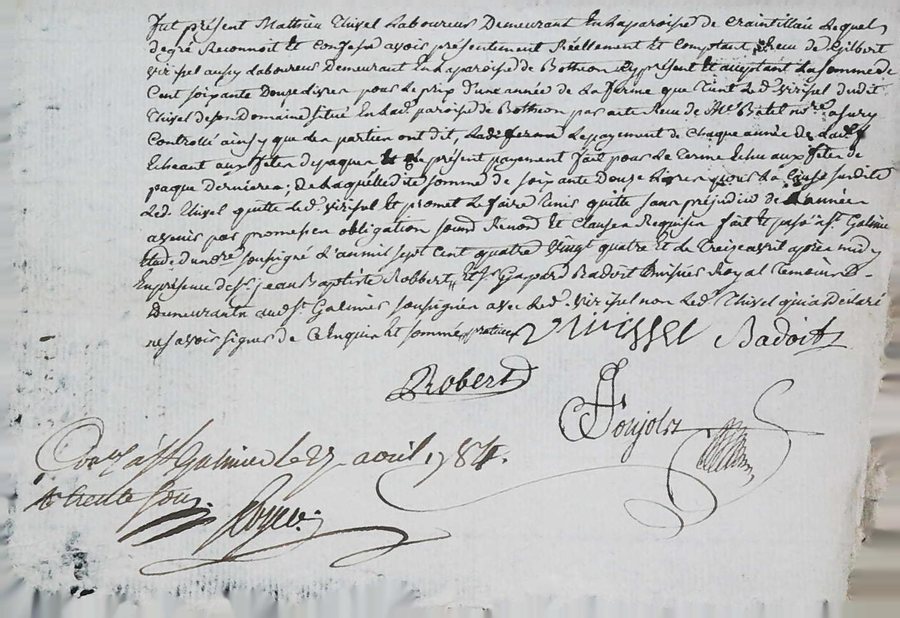 fut présent Mathieu Thivel Laboureur Demeurant En La paroisse de Craintilliau Lequel
de gré Reconnoit Et Confesse avoir présentement Réellement Et Comptant Receu de Gilbert
virissel aussy Laboureur Demeurant En La paroisse de Bothéon icy présent Et acceptant La somme de
Cent soixante Douse Livres pour Le prix d'une année de La ferme que Tient Led. virissel dudit
Thivel de son Domaine situé En Lad. paroisse de Bothéon par acte Receu de Me Batel nore a sury
Controllé ainsy que Les parties ont dit, Lad. ferme Le payement de Chaque année de Lad.
Echeant aux fetes de paques Et Le présent payement fait pour Le Terme Echu aux fetes de
paque dernieres; De Laquelle dite somme de soixante Douse Livres pour La Cause susdite
Led. Thivel quitte Led. virissel Et promet Le faire Tenir quitte sans préjudice de L'année
a venir par promesses obligation soumd Renond Et Clauses Requises fait Et passé a St. Galmier
Etude du nore soussigné L'an mil sept Cent quatre vingt quatre Et Le Treize avril après midy
En présence de Sr. jean Baptiste Robbert, Et Sr. Gaspard Badoit huissier Royal Temoins
Demeurants aud. St. Galmier soussignés avec Led. virissel non Led. Thivel qui a declaré
ne savoir signer de Ce Enquis Et sommé
virissel Badoit
Robert
Poujols
Con.lé à St Galmier le 27 avril 1784.
R trente sous.